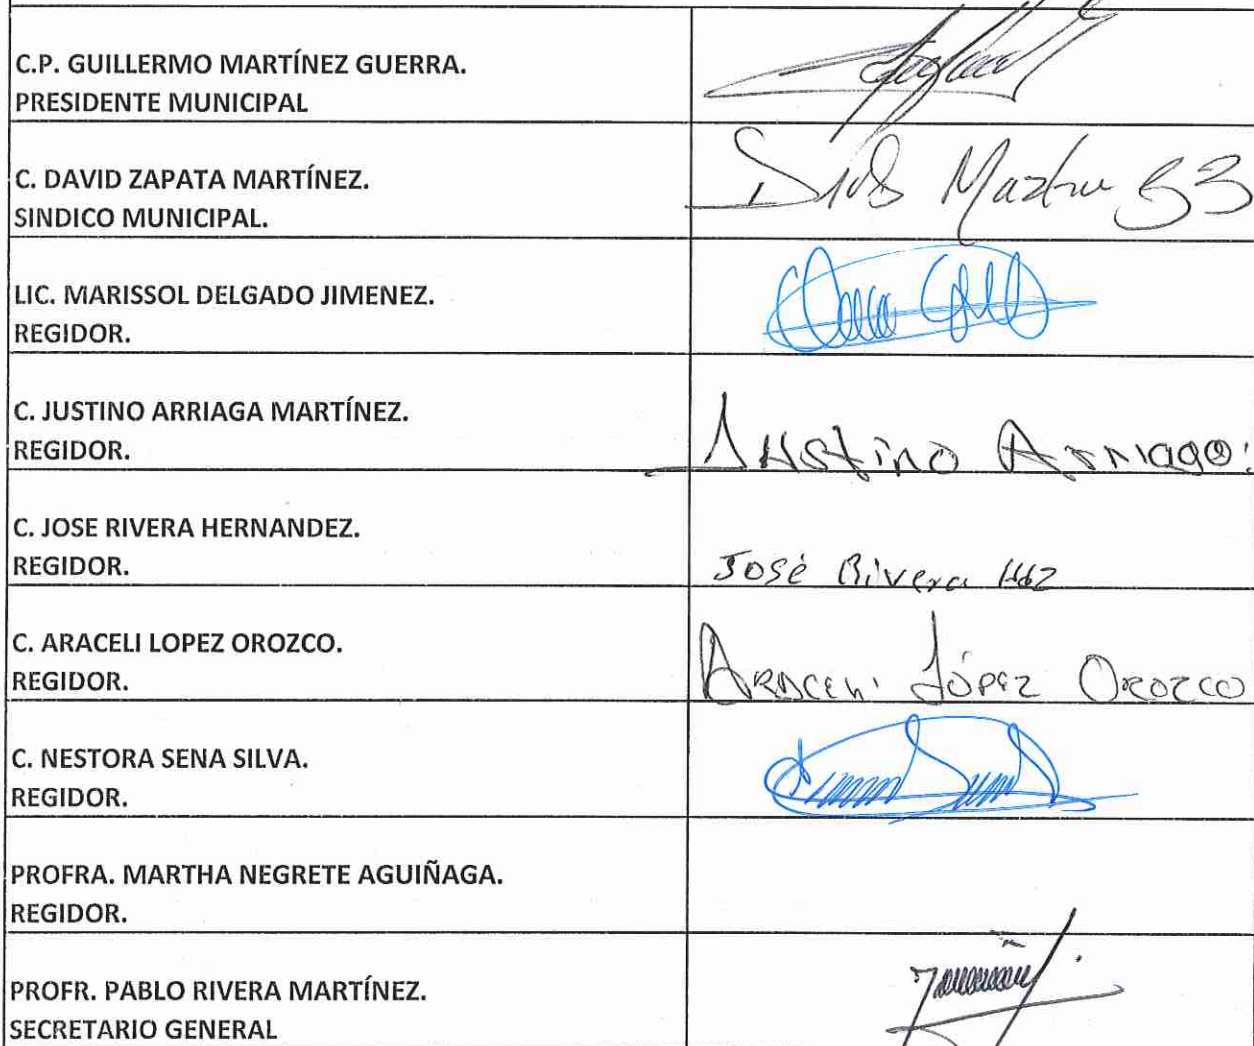 C.P. GUILLERMO MARTÍNEZ GUERRA.
PRESIDENTE MUNICIPAL
C. DAVID ZAPATA MARTÍNEZ.
SINDICO MUNICIPAL.
LIC. MARISSOL DELGADO JIMENEZ.
REGIDOR.
C. JUSTINO ARRIAGA MARTÍNEZ.
REGIDOR.
Justino Arriaga
C. JOSE RIVERA HERNANDEZ.
REGIDOR.
José Rivera Hdz
C. ARACELI LOPEZ OROZCO.
REGIDOR.
Araceli López Orozco
C. NESTORA SENA SILVA.
REGIDOR.
PROFRA. MARTHA NEGRETE AGUIÑAGA.
REGIDOR.
PROFR. PABLO RIVERA MARTÍNEZ.
SECRETARIO GENERAL